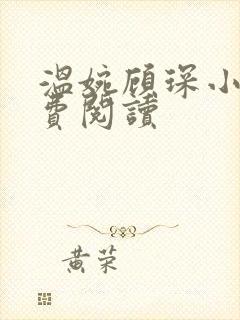 温婉顾琛小
費閱讀
黄荣